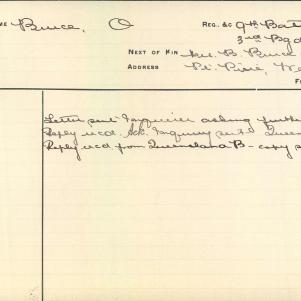 ME Bruce, O
REG. &c 9th Bat
3rd Bgd
NEXT OF KIN Mr. B. Bruce
ADDRESS Pt. Pirie, We
F
Letter sent Inquirer asking furth
Reply recd. Ack. Inquiry sent Queens
Reply recd from Queensland B - copy s